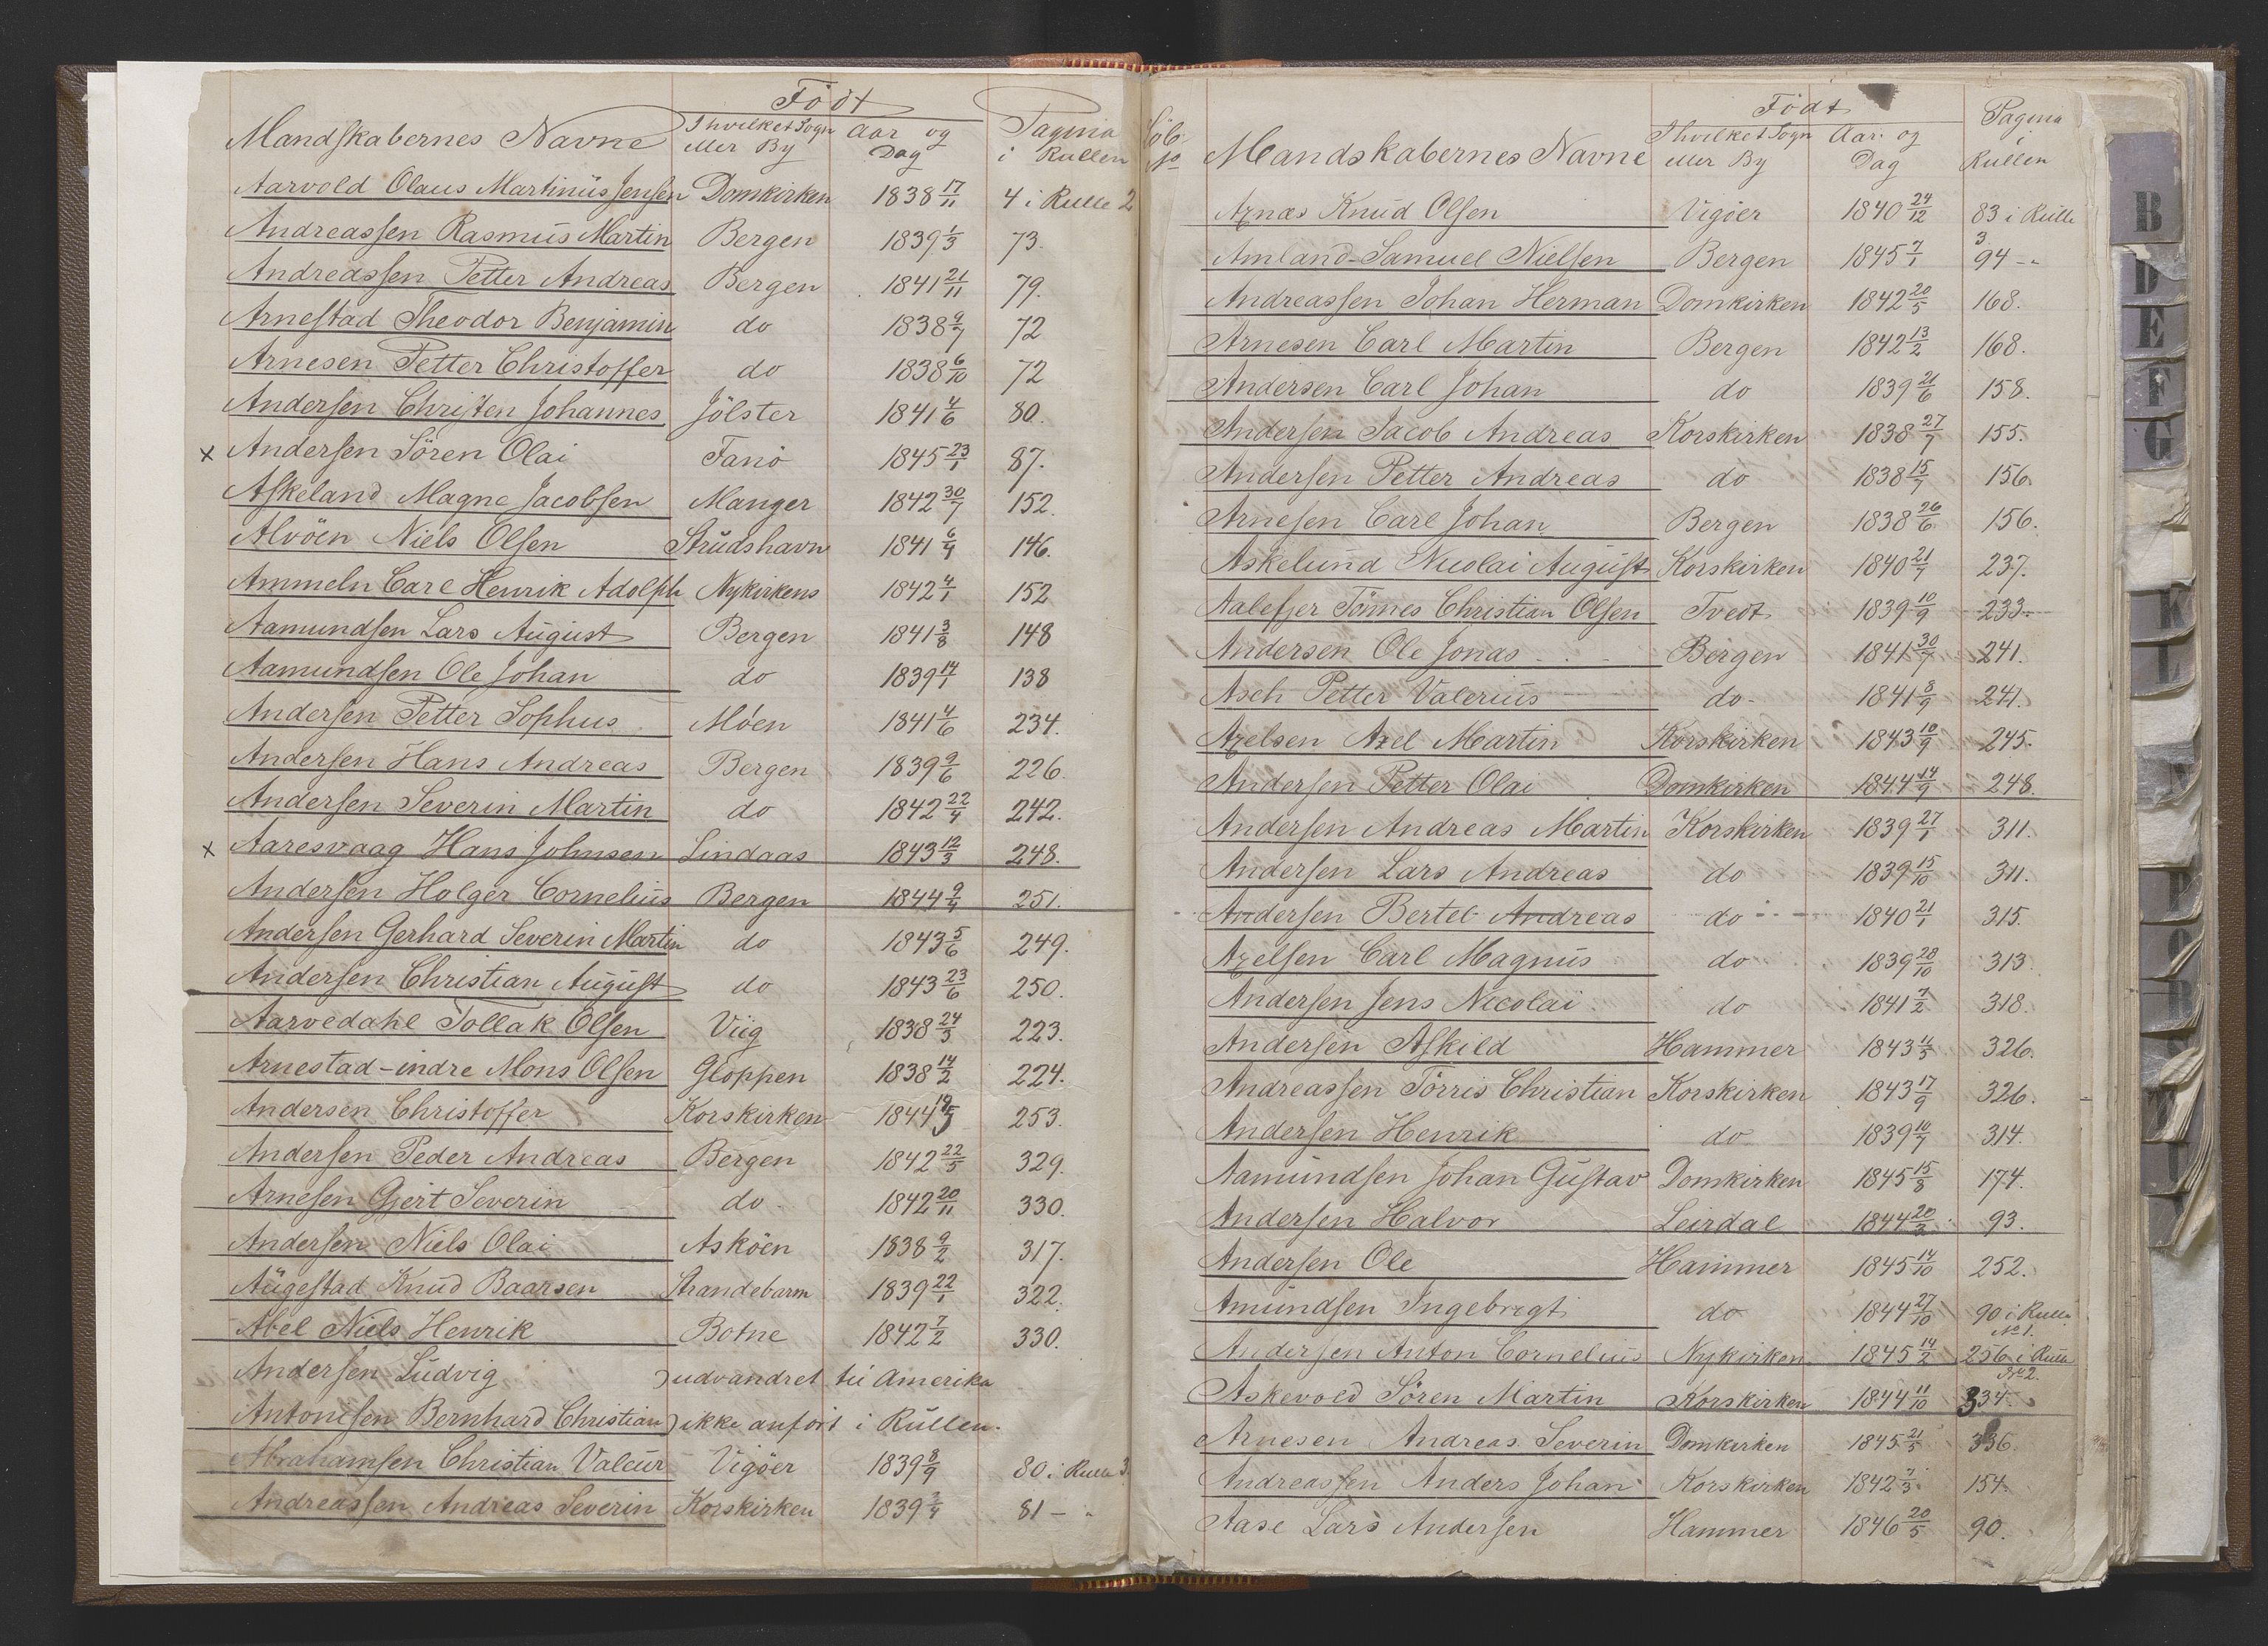 Födt
Mandskabernes Navne I hvilket Sogn eller By Aar og Dag Pagina i Rullen
Aarvold Olaus Martinus Jensen Domkirken 1838 17/11 4 i Rulle 2
Andreassen Rasmus Martin Bergen 1839 1/3 73.
Andreassen Petter Andreas Bergen 1841 21/11 79.
Arnestad Theodor Benjamin do 1838 9/7 72
Arnesen Petter Christoffer do 1838 6/10 72
Andersen Christen Johannes Jölster 1841 4/6 80.
x Andersen Sören Olai Fanö 1845 23/1 87.
Askeland Magne Jacobsen Manger 1842 30/7 152.
Alvöen Niels Olsen Strudshavn 1841 6/4 146.
Ammeln Carl Henrik Adolph Nykirkens 1842 4/1 152
Aamundsen Lars August Bergen 1841 3/8 148
Aamundsen Ole Johan do 1839 14/1 138
Andersen Petter Sophus Möen 1841 4/6 234.
Andersen Hans Andreas Bergen 1839 9/6 226.
Andersen Severin Martin do 1842 22/4 242.
x Aaresvaag Hans Johnsen Lindaas 1843 12/3 248.
Andersen Holger Cornelius Bergen 1844 9/4 251.
Andersen Gerhard Severin Martin do 1843 5/6 249.
Andersen Christian August do 1843 23/6 250.
Aarvedahl Tollak Olsen Viig 1838 24/3 223.
Arnestad-indre Mons Olsen Gloppen 1838 14/2 224.
Andersen Christoffer Korskirken 1844 253.
Andersen Peder Andreas Bergen 1842 22/5 329.
Arnesen Gjert Severin do 1842 20/11 330.
Andersen Niels Olai Asköen 1838 9/2 317.
Augestad Knud Baarsen Strandebarm 1839 22/1 322.
Abel Niels Henrik Botne 1842 7/2 330.
Andersen Ludvig ) udvandret til Amerika
Antonisen Bernhard Christian ) ikke anfört i Rullen.
Abrahamsen Christian Valeur Vigöer 1839 8/9 80 i Rulle 3
Andreassen Andreas Severin Korskirken 1839 2/4 81 - "
Födt
Löb. No Mandskabernes Navne I hvilket Sogn eller By Aar og Dag Pagina i Rullen
Aznæs Knud Olsen Vigöer 1840 24/12 83 i Rulle 3.
Amland-Samuel Nielsen Bergen 1845 7/1 94 - "
Andreassen Johan Herman Domkirken 1842 20/5 168.
Arnesen Carl Martin Bergen 1842 13/2 168.
Andersen Carl Johan do 1839 21/6 158.
Andersen Jacob Andreas Korskirken 1838 27/7 155.
Andersen Petter Andreas do 1838 15/7 156.
Arnesen Carl Johan Bergen 1838 26/6 156.
Askelund Nicolai August Korskirken 1840 21/7 237.
Aalefjer Tönnes Christian Olsen Tvedt 1839 10/9 233.
Andersen Ole Jonas Bergen 1841 30/7 241.
Asch Petter Valerius do 1841 8/9 241.
Axelsen Axel Martin Korskirken 1843 10/9 245.
Andersen Petter Olai Domkirken 1844 14/9 248.
Andersen Andreas Martin Korskirken 1839 27/1 311.
Andersen Lars Andreas do 1839 15/10 311.
Andersen Bertel Andreas do 1840 21/1 315.
Axelsen Carl Magnus do 1839 28/10 313.
Andersen Jens Nicolai do 1841 7/2 318.
Andersen Askild Hammer 1843 4/5 326.
Andreassen Törris Christian Korskirken 1843 17/9 326.
Andersen Henrik do 1839 10/7 314.
Aamundsen Johan Gustav Domkirken 1845 15/8 174.
Andersen Halvor Leirdal 1844 20/2 93.
Andersen Ole Hammer 1845 14/10 252.
Amundsen Ingebrigt do 1844 27/10 90 i Rulle No 1.
Andersen Anton Cornelius Nykirken 1845 14/2 256 i Rulle No 2.
Askevold Sören Martin Korskirken 1844 11/10 334.
Arnesen Andreas Severin Domkirken 1845 21/5 336.
Andreassen Anders Johan Korskirken 1842 7/3 154.
Aase Lars Andersen Hammer 1846 20/5 90.
B
D
E
F
G
K
L
N
P